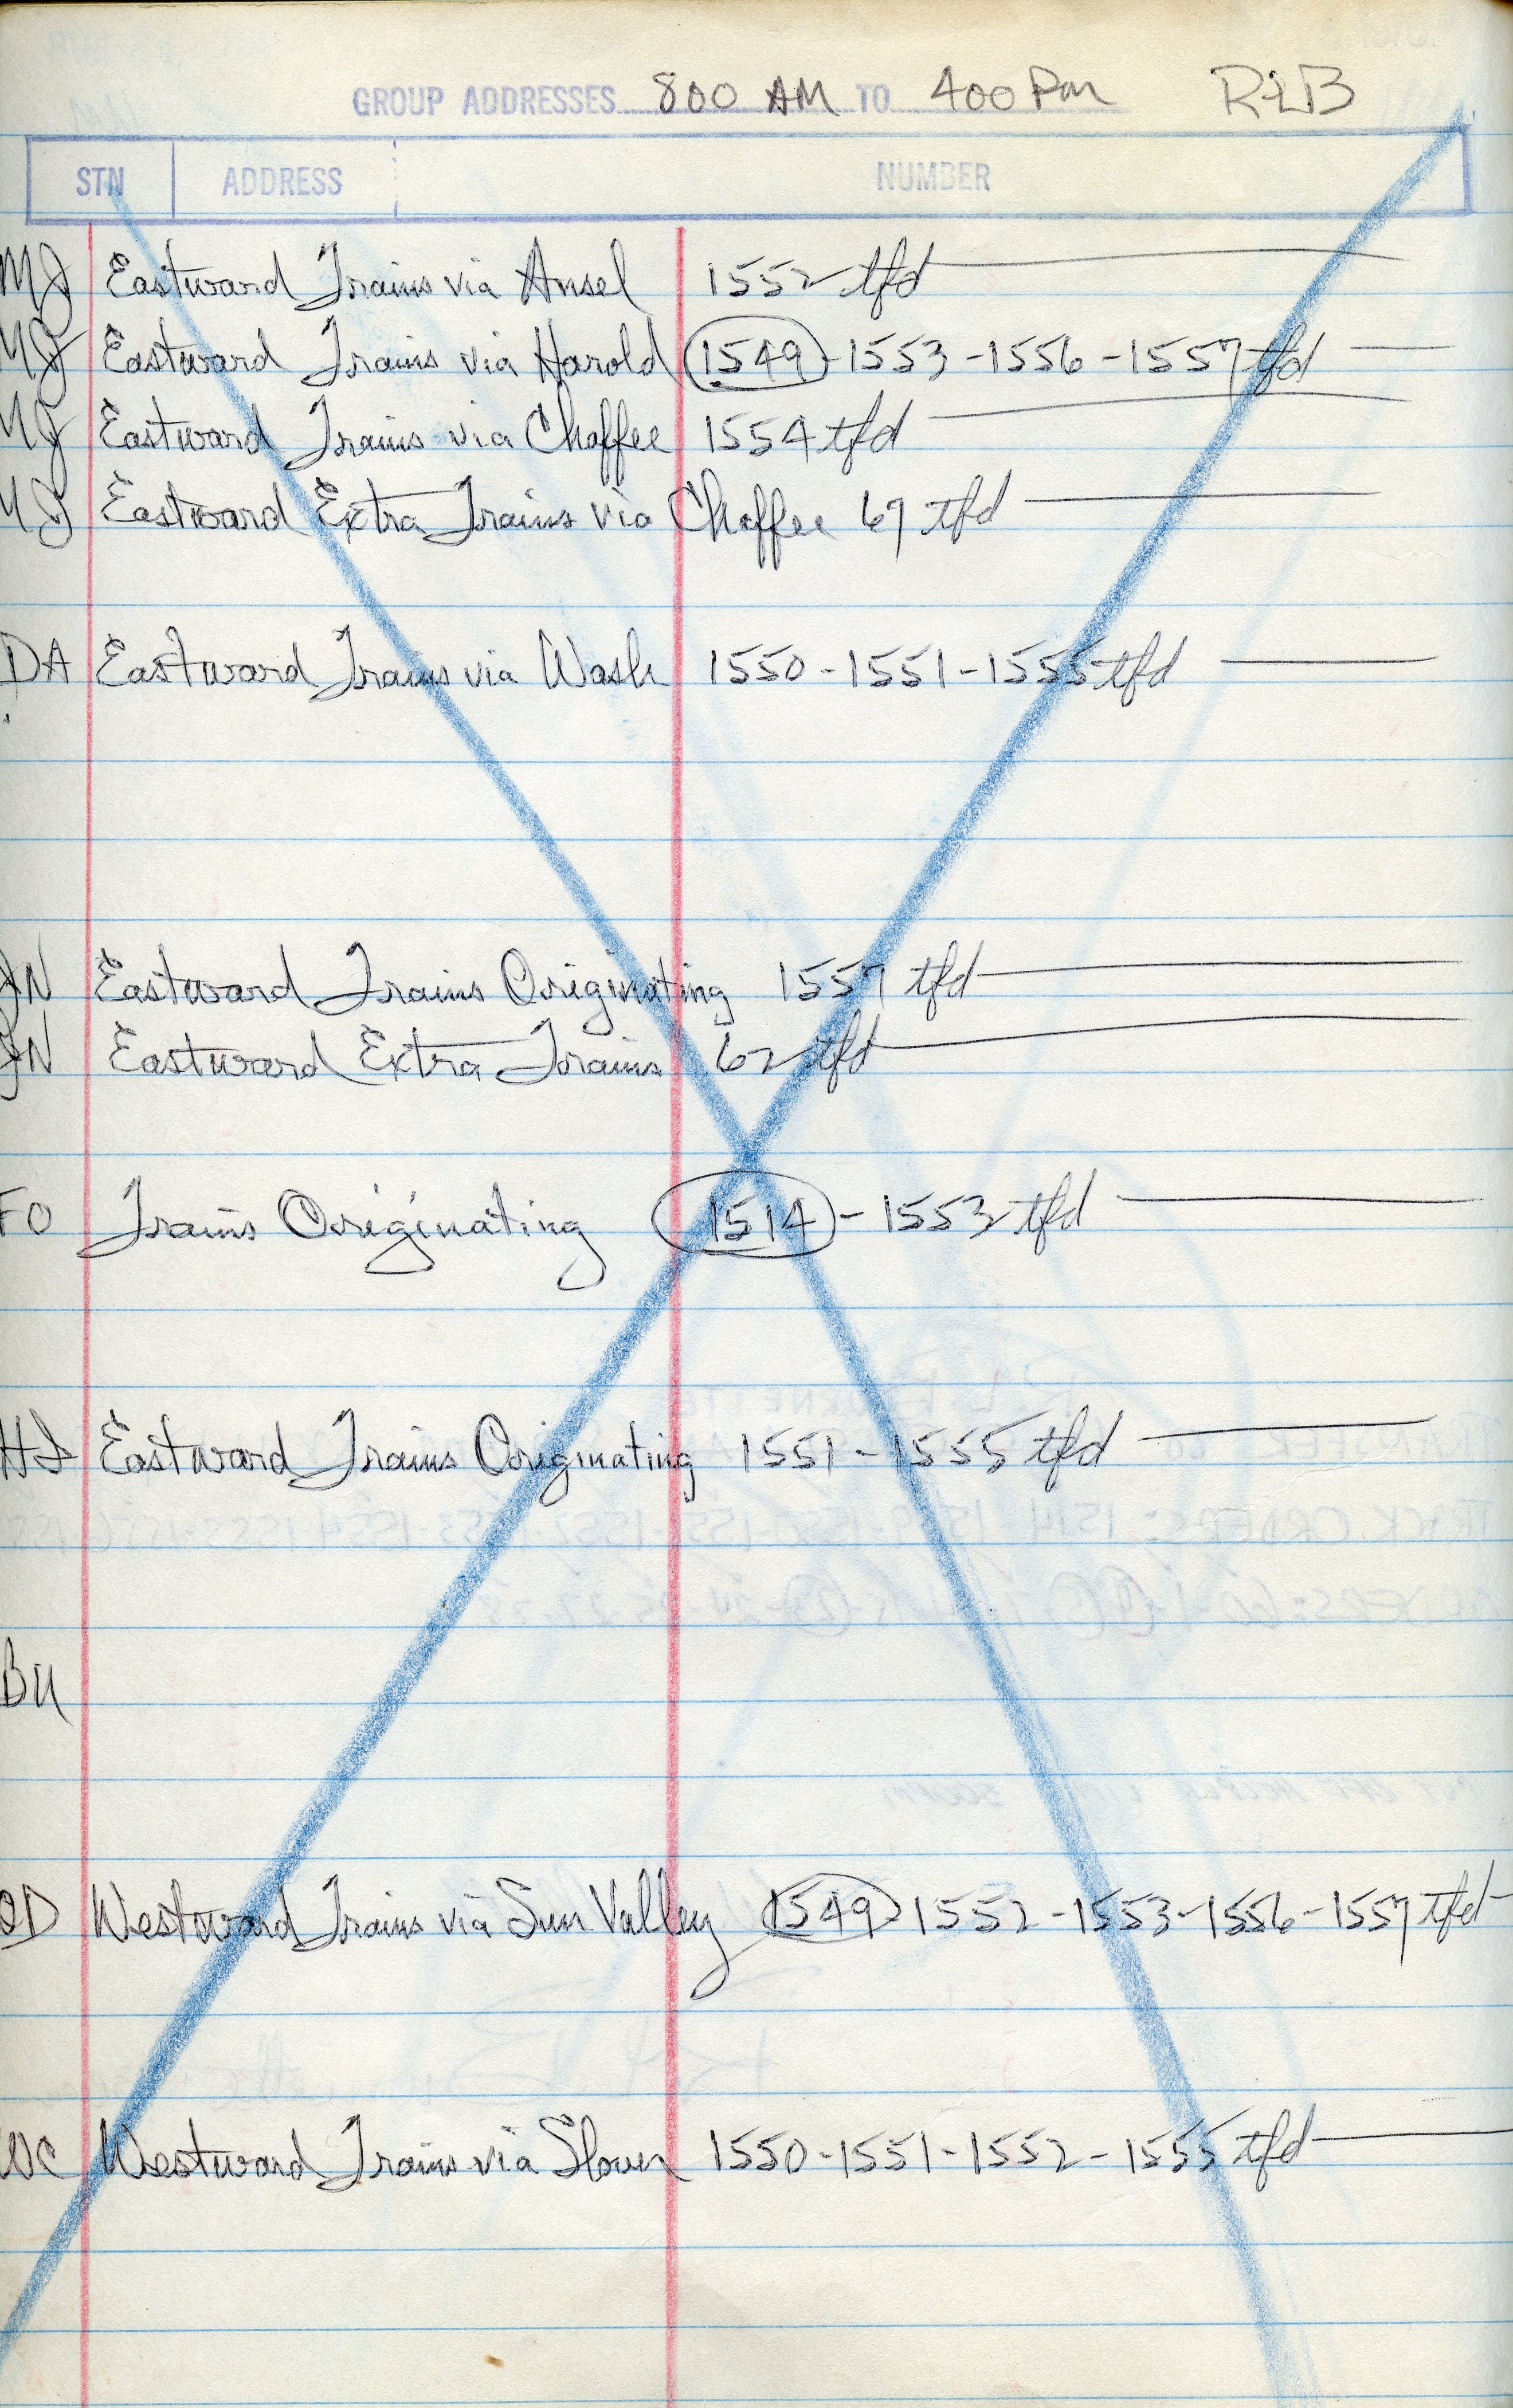 GROUP ADDRESSES 800 AM TO 400 Pm RLB
STN ADDRESS NUMBER
MJ Eastward Trains via Ansel 1552 tfd
MJ Eastward Trains via Harold 1549 - 1553 - 1556 - 1557 tfd
MJ Eastward Trains via Chaffee 1554 tfd
MJ Eastward Extra Trains via Chaffee 67 tfd
DA Eastward Trains via Wash 1550 - 1551 - 1555 tfd
JN Eastward Trains Originating 1557 tfd
JN Eastward Extra Trains 62 tfd
FO Trains Originating 1514 - 1553 tfd
Eastward Trains Originating 1551 - 1555 tfd
BU
OD Westward Trains via Sun Valley 1549 1552 - 1553 - 1556 - 1557 tfd
WC Westward Trains via Slover 1550 - 1551 - 1552 - 1555 tfd